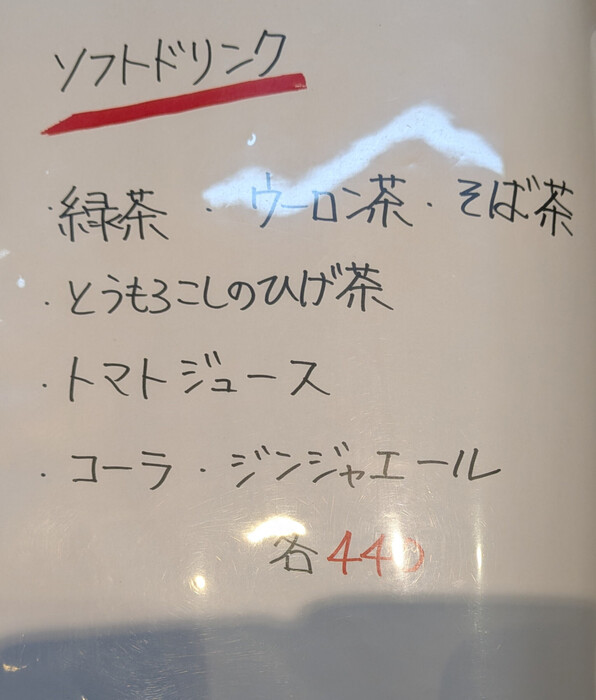 ソフトドリンク
・緑茶 ・ウーロン茶・そば茶
・とうもろこしのひげ茶
・トマトジュース
・コーラ・ジンジャエール
各440